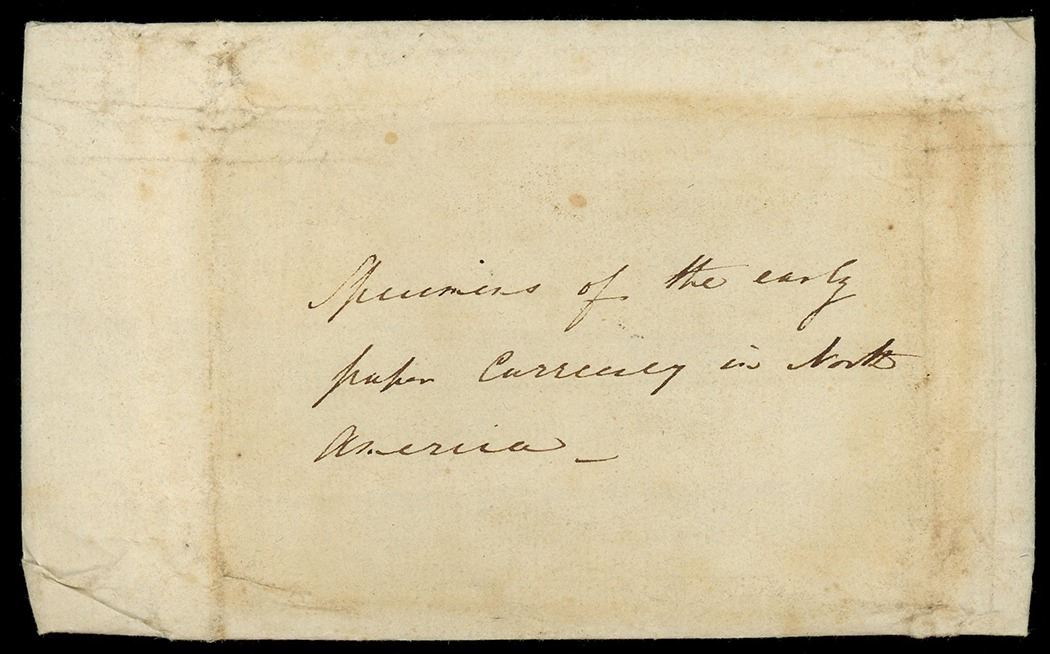 Specimens of the early
paper Currency in North
America _